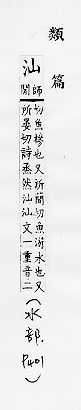 類篇
汕師閒
切魚樔也又所簡切魚游水也又
所晏切詩烝然汕汕文一重音二
(水部. P401)